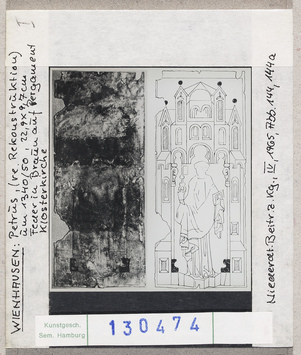 WIENHAUSEN: Petrus, (re. Rekonstruktion)
um 1340/50, 22,9 x 9,7cm
Feder in Braun auf Pergament
Klosterkirche
Niederdt. Beitr. z. Kg., IV, 1965, Abb. 144, 144a
Kunstgesch.
Sem. Hamburg
130474